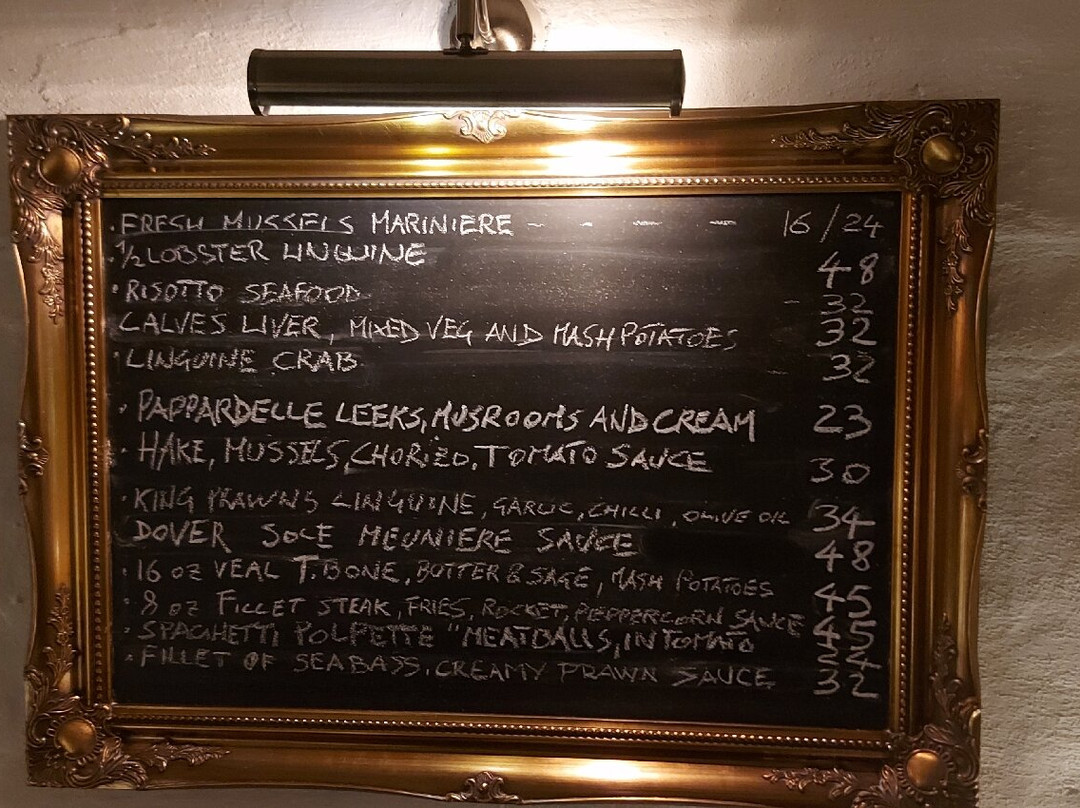 · FRESH MUSSELS MARINIERE - - - - 16/24
· 1/2 LOBSTER LINGUINE 48
· RISOTTO SEAFOOD - 32
CALVES LIVER, MIXED VEG AND MASH POTATOES 32
· LINGUINE CRAB 32
· PAPPARDELLE LEEKS, MUSROOMS AND CREAM 23
· HAKE, MUSSELS, CHORIZO, TOMATO SAUCE 30
· KING PRAWNS LINGUINE, GARLIC, CHILLI, OLIVE OIL 34
DOVER SOLE MEUNIERE SAUCE 48
· 16 OZ VEAL T.BONE, BUTTER & SAGE, MASH POTATOES 45
· 8 OZ FILLET STEAK, FRIES, ROCKET, PEPPERCORN SAUCE 45
· SPAGHETTI POLPETTE "MEATBALLS, IN TOMATO
· FILLET OF SEABASS, CREAMY PRAWN SAUCE 32